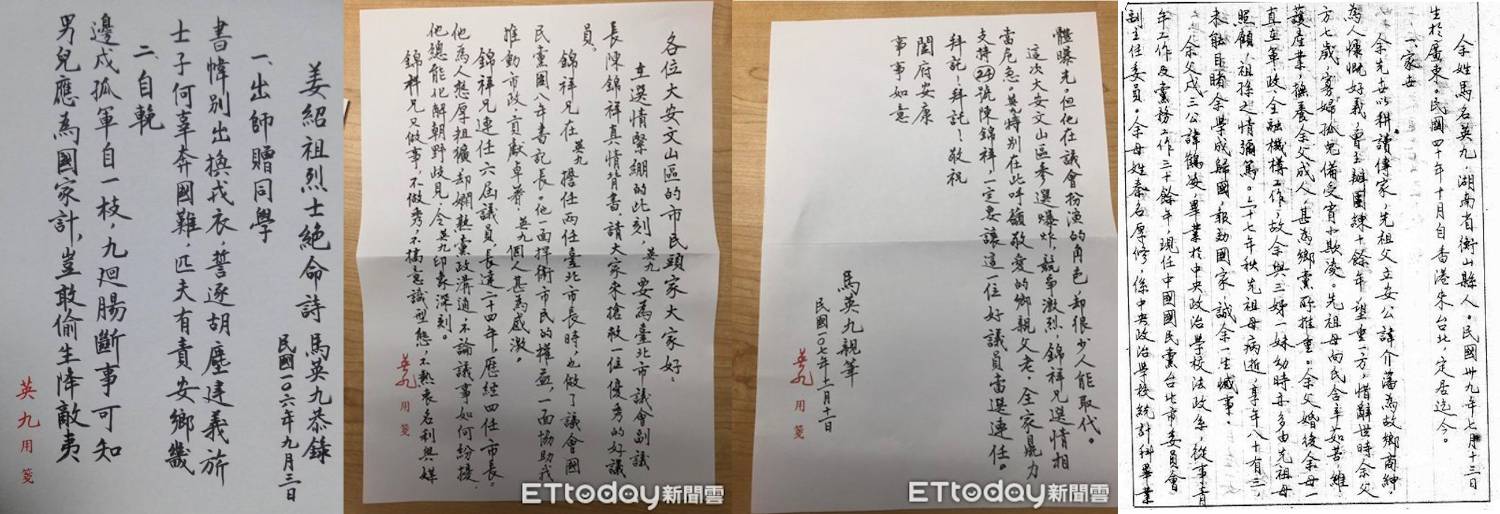 姜紹祖烈士絕命詩 馬英九恭錄
民國一〇六年九月三日
一、出師贈同學
書幃別出換戎衣,誓逐胡塵建義旂
士子何辜奔國難,匹夫有責安鄉畿
二、自輓
邊戍孤軍自一枝,九迴腸斷事可知
男兒應為國家計,豈敢偷生降敵夷
英九用箋
各位大安文山區的市民頭家大家好:
在選情緊繃的此刻,英九要為臺北市議會副議
長陳錦祥真情背書,請大家來搶救一位優秀的好議
員。
錦祥兄在英九擔任兩任臺北市長時,也做了議會國
民黨團八年書記長。他一面捍衛市民的權益,一面協助我
推動市政,貢獻卓著,英九個人甚為感激。
錦祥兄連任六屆議員,長達二十四年,歷經四任市長。
他為人憨厚粗獷,卻嫻熟黨政溝通,不論議事如何紛擾,
他總能化解朝野歧見,令英九印象深刻。
錦祥兄只做事,不做秀,不搞意識型態,不熱衷名利與媒
英九用箋
ETtoday新聞雲
體曝光,但他在議會扮演的角色,卻很少人能取代。
這次大安文山區參選爆炸,競爭激烈,錦祥兄選情相
當危急。英九特別在此呼籲敬愛的鄉親父老,全家鼎力
支持24號陳錦祥,一定要讓這一位好議員當選連任。
拜託,拜託!敬祝
闔府安康
事事如意
馬英九親筆
民國一〇七年十一月十一日
英九用箋
ETtoday新聞雲
余姓馬名英九,湖南省衡山縣人。民國卅九年七月十三日
生於廣東。民國四十年十月自香港來台北,定居迄今。
一、家世
余先世以耕讀傳家,先祖父立安公諱介藩為故鄉商紳,
為人慷慨好義,曾主辦團練十餘年,望重一方,惜辭世時余父
方七歲,寡婦孤兒備受宵小欺凌。先祖母向氏含辛茹苦,維
護產業,撫養余父成人,甚為鄉黨所推重。余父婚後余母一
直至軍政、金融機構工作,故余與三姊一妹幼時亦多由先祖母
照顧,祖孫之情彌篤。六十七年秋先祖母病逝,享年八十有三,
未能目睹余學成歸國,報効國家,誠余一生憾事。
余父成三公諱鶴凌,畢業於中央政治學校法政系,從事青
年工作及黨務工作三十餘年,現任中國國民黨台北市委員會
副主任委員。余母姓秦名厚修,係中央政治學校統計科畢業